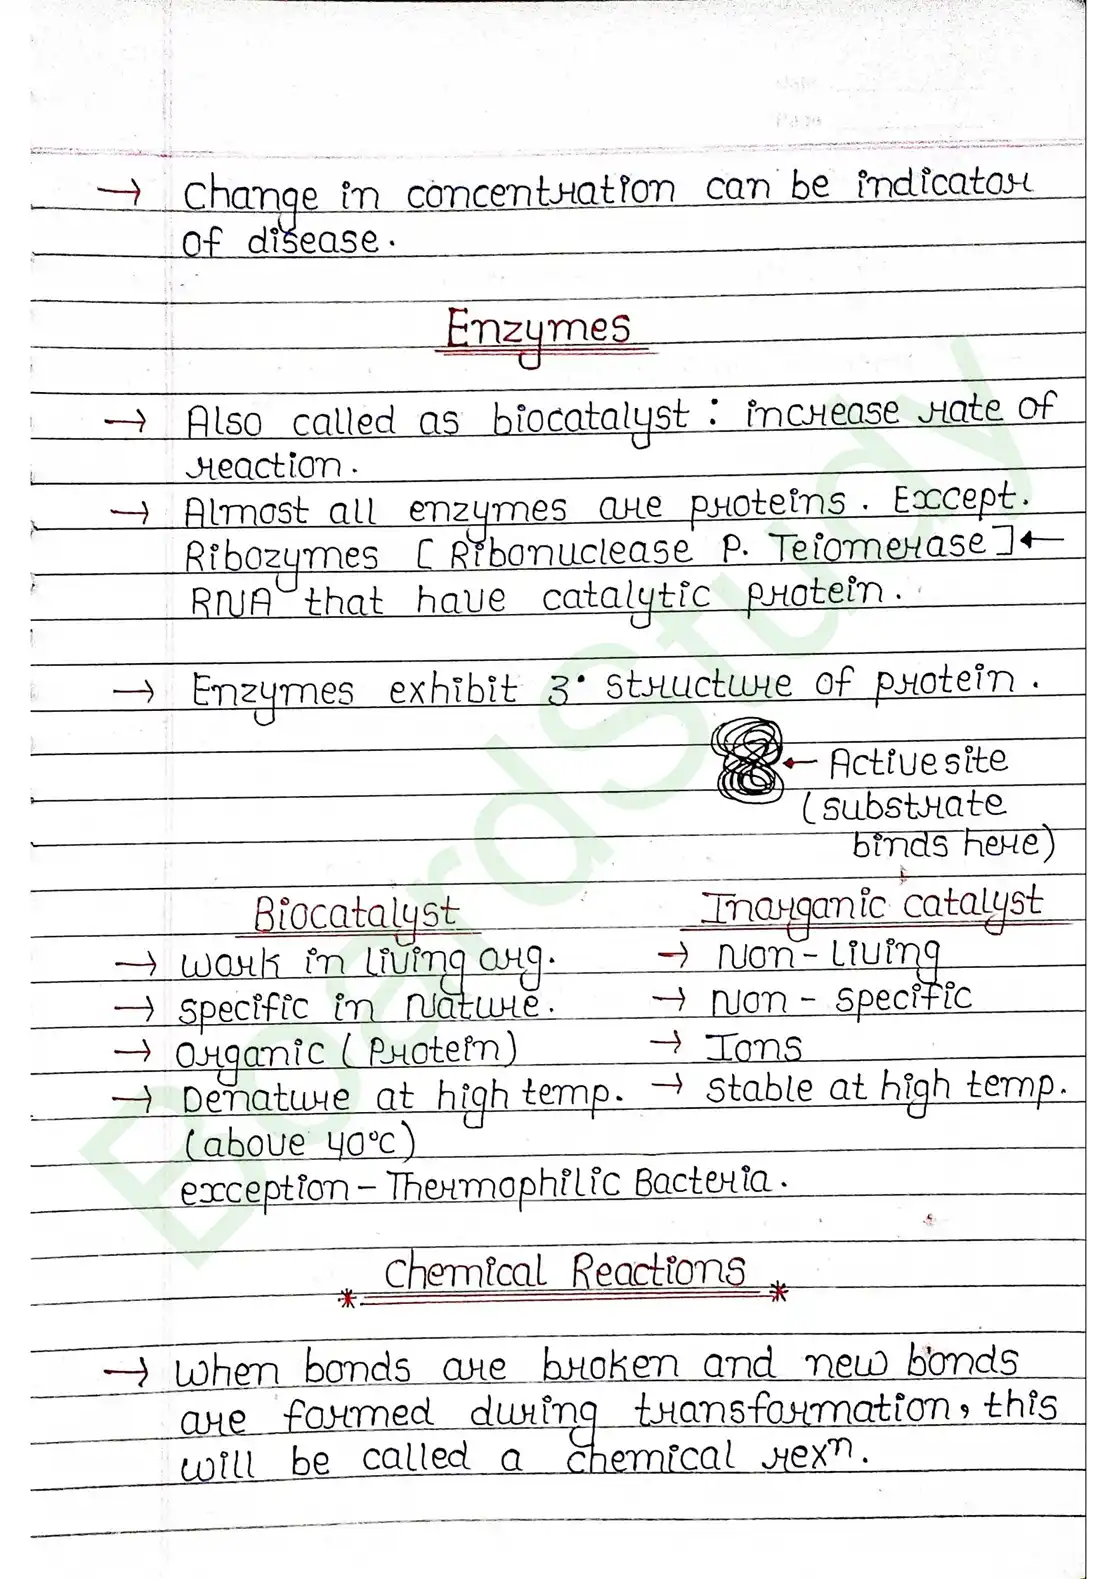 → Change in concentration can be indicator
of disease.
Enzymes
→ Also called as biocatalyst : increase rate of
reaction.
→ Almost all enzymes are proteins. Except.
Ribozymes [Ribonuclease P. Telomerase] ←
RNA that have catalytic protein.
→ Enzymes exhibit 3° structure of protein.
← Active site
(substrate
binds here)
Biocatalyst Inorganic catalyst
→ work in living org. → Non-Living
→ specific in Nature. → Non-specific
→ organic (Protein) → Ions
→ Denature at high temp. → stable at high temp.
(above 40°c)
exception - Thermophilic Bacteria.
* Chemical Reactions *
→ when bonds are broken and new bonds
are formed during transformation, this
will be called a chemical rexⁿ.
BoardStudy